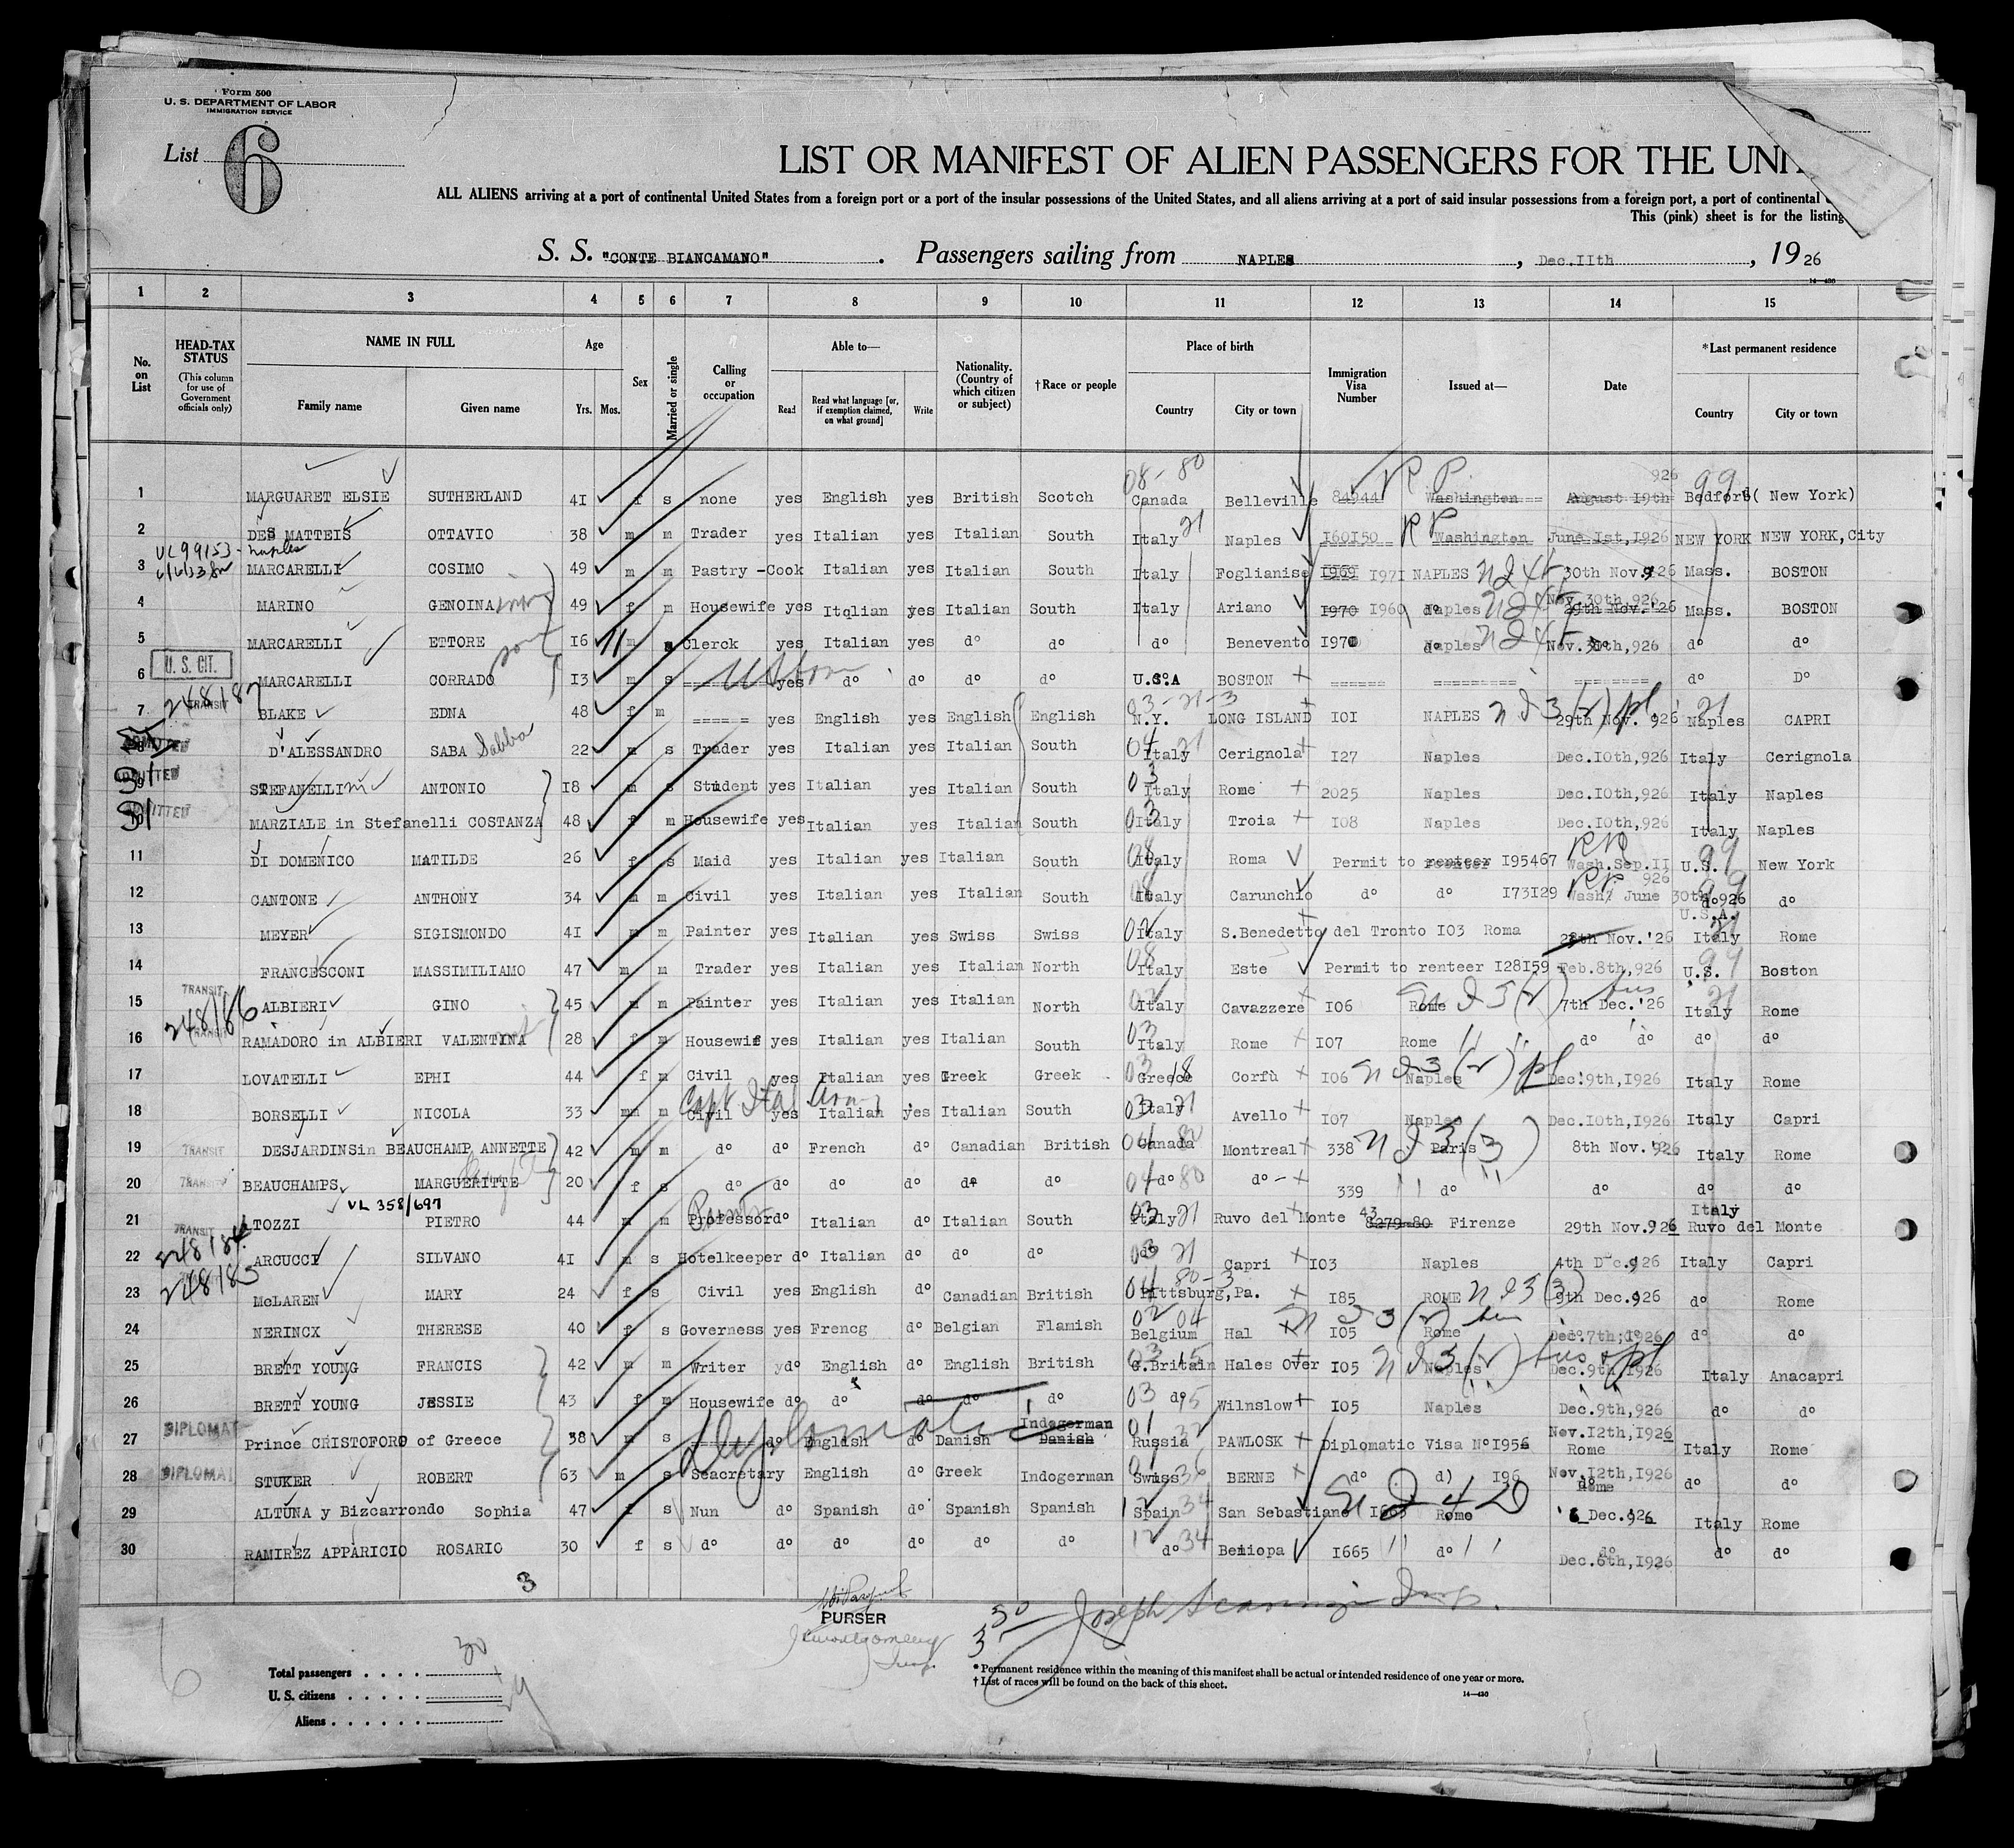 Form 500
U. S. DEPARTMENT OF LABOR
IMMIGRATION SERVICE
List 6
LIST OR MANIFEST OF ALIEN PASSENGERS FOR THE UNI
ALL ALIENS arriving at a port of continental United States from a foreign port or a port of the insular possessions of the United States, and all aliens arriving at a port of said insular possessions from a foreign port, a port of continental
This (pink) sheet is for the listing
S. S. "CONTE BIANCAMANO" . Passengers sailing from NAPLES , Dec.IIth , 1926
14-430
1 2 3 4 5 6 7 8 9 10 11 12 13 14 15
No. on List
HEAD-TAX STATUS
(This column for use of Government officials only)
NAME IN FULL
Family name Given name
Age
Yrs. Mos.
Sex
Married or single
Calling or occupation
Able to—
Read Read what language [or, if exemption claimed, on what ground] Write
Nationality. (Country of which citizen or subject)
†Race or people
Place of birth
Country City or town
Immigration Visa Number
Issued at—
Date
*Last permanent residence
Country City or town
08-80 R P. 926 99
1 MARGUARET ELSIE SUTHERLAND 4I f s none yes English yes British Scotch Canada Belleville 84944 Washington August I9th Bedford ( New York)
2 DES MATTEIS OTTAVIO 38 m m Trader yes Italian yes Italian South Italy 21 Naples I60I50 R P Washington June Ist,I926 NEW YORK NEW YORK,City
VL99153- Naples
3 MARCARELLI COSIMO 49 m m Pastry -Cook Italian yes Italian South Italy Foglianise I969 I97I NAPLES 30th Nov.926 Mass. BOSTON
4 MARINO GENOINA 49 f m Housewife yes Italian yes Italian South Italy Ariano I970 I969 Naples Nov.30th,926 29th Nov.'26 Mass. BOSTON
5 MARCARELLI ETTORE son I6 11 m s Clerck yes Italian yes d° d° d° Benevento I970 Naples Nov.30th,926 d° d°
U. S. CIT.
6 MARCARELLI CORRADO I3 m s yes d° d° d° d° U.S.A BOSTON ====== ========= ======== d° D°
248187 TRANSIT 03-21-3
7 BLAKE EDNA 48 f m ====== yes English yes English English N.Y. LONG ISLAND IOI NAPLES 29th Nov. 926 Naples CAPRI
ADMITTED
8 D'ALESSANDRO SABA Sabba 22 m s Trader yes Italian yes Italian South 04 Italy 21 Cerignola I27 Naples Dec.I0th,926 Italy Cerignola
ADMITTED
9 STEFANELLI ANTONIO I8 m s Student yes Italian yes Italian South 03 Italy Rome 2025 Naples Dec.I0th,926 Italy Naples
ADMITTED
10 MARZIALE in Stefanelli COSTANZA 48 f m Housewife yes Italian yes Italian South 03 Italy Troia I08 Naples Dec.I0th,926 Italy Naples
11 DI DOMENICO MATILDE 26 f s Maid yes Italian yes Italian South 08 Italy Roma Permit to renteer I95467 Wash.Sep.II 926 U.S. 99 New York
12 CANTONE ANTHONY 34 m m Civil yes Italian yes Italian South 08 Italy Carunchio d° d° I73I29 Wash. June 30th 926 d° U.S.A. d°
13 MEYER SIGISMONDO 4I m m Painter yes Italian yes Swiss Swiss 02 Italy S.Benedetto del Tronto I03 Roma 28th Nov.'26 Italy Rome
14 FRANCESCONI MASSIMILIAMO 47 m m Trader yes Italian yes Italian North 08 Italy Este Permit to renteer I28I59 Feb.8th,926 U.S. 99 Boston
TRANSIT 248186
15 ALBIERI GINO 45 m m Painter yes Italian yes Italian North 02 Italy Cavazzere I06 Rome 7th Dec.'26 Italy Rome
TRANSIT
16 RAMADORO in ALBIERI VALENTINA 28 f m Housewife yes Italian yes Italian South 03 Italy Rome I07 Rome d° d° d° d°
17 LOVATELLI EPHI 44 f m Civil yes Italian yes Greek Greek 03 Greece 18 Corfù I06 Naples Dec.9th,I926 Italy Rome
Capt Ital Army
18 BORSELLI NICOLA 33 m m Civil yes Italian yes Italian South 03 Italy 21 Avello I07 Naples Dec.I0th,I926 Italy Capri
19 TRANSIT DESJARDINSin BEAUCHAMP ANNETTE 42 m m d° d° French d° Canadian British 04 Canada 80 Montreal 338 Paris 8th Nov.'926 Italy Rome
20 TRANSIT BEAUCHAMPS MARGUERITTE 20 f s d° d° d° d° d° d° 04 d° 80 d° 339 d° d° d° d°
VL 358/697
21 TOZZI PIETRO 44 m m Professor d° Italian d° Italian South 03 Italy 21 Ruvo del Monte 43 8279-80 Firenze 29th Nov.926 Italy Ruvo del Monte
TRANSIT 248184
22 ARCUCCI SILVANO 4I m s Hotelkeeper d° Italian d° d° d° 03 d° 21 Capri I03 Naples 4th Dec.926 Italy Capri
248185
23 McLAREN MARY 24 f s Civil yes English d° Canadian British 04 80-3 Pittsburg,Pa. I85 ROME 9th Dec.926 d° Rome
24 NERINCX THERESE 40 f s Governess yes Frencg d° Belgian Flamish 02 04 Belgium Hal I05 Rome Dec.7th,I926 d° d°
25 BRETT YOUNG FRANCIS 42 m m Writer yd° English d° English British 03 15 G.Britain Hales Over I05 Naples Dec.9th,I926 Italy Anacapri
26 BRETT YOUNG JESSIE 43 f m Housewife d° d° d° d° d° 03 d° Wilnslow I05 Naples Dec.9th,926 d° d°
Diplomatic
27 DIPLOMAT Prince CRISTOFORO of Greece 38 m s d° English d° Danish Indogerman Danish 01 32 Russia PAWLOSK Diplomatic Visa N°I956 Nov.I2th,I926 Rome Italy Rome
28 DIPLOMAT STUKER ROBERT 63 m s Seacretary English d° Greek Indogerman 01 36 Swiss BERNE d° d) I96 Nov.I2th,I926 Rome d° d°
29 ALTUNA y Bizcarrondo Sophia 47 f s Nun d° Spanish d° Spanish Spanish 12 34 Spain San Sebastiano Rome 6 Dec.926 Italy Rome
30 RAMIREZ APPARICIO ROSARIO 30 f s d° d° d° d° d° d° 12 34 d° Beniopa I665 d° Dec.6th,I926 d° d°
3
PURSER
30
Joseph
Total passengers . . . . 30
U. S. citizens . . . . .
Aliens . . . . . .
* Permanent residence within the meaning of this manifest shall be actual or intended residence of one year or more.
† List of races will be found on the back of this sheet.
14-430
6